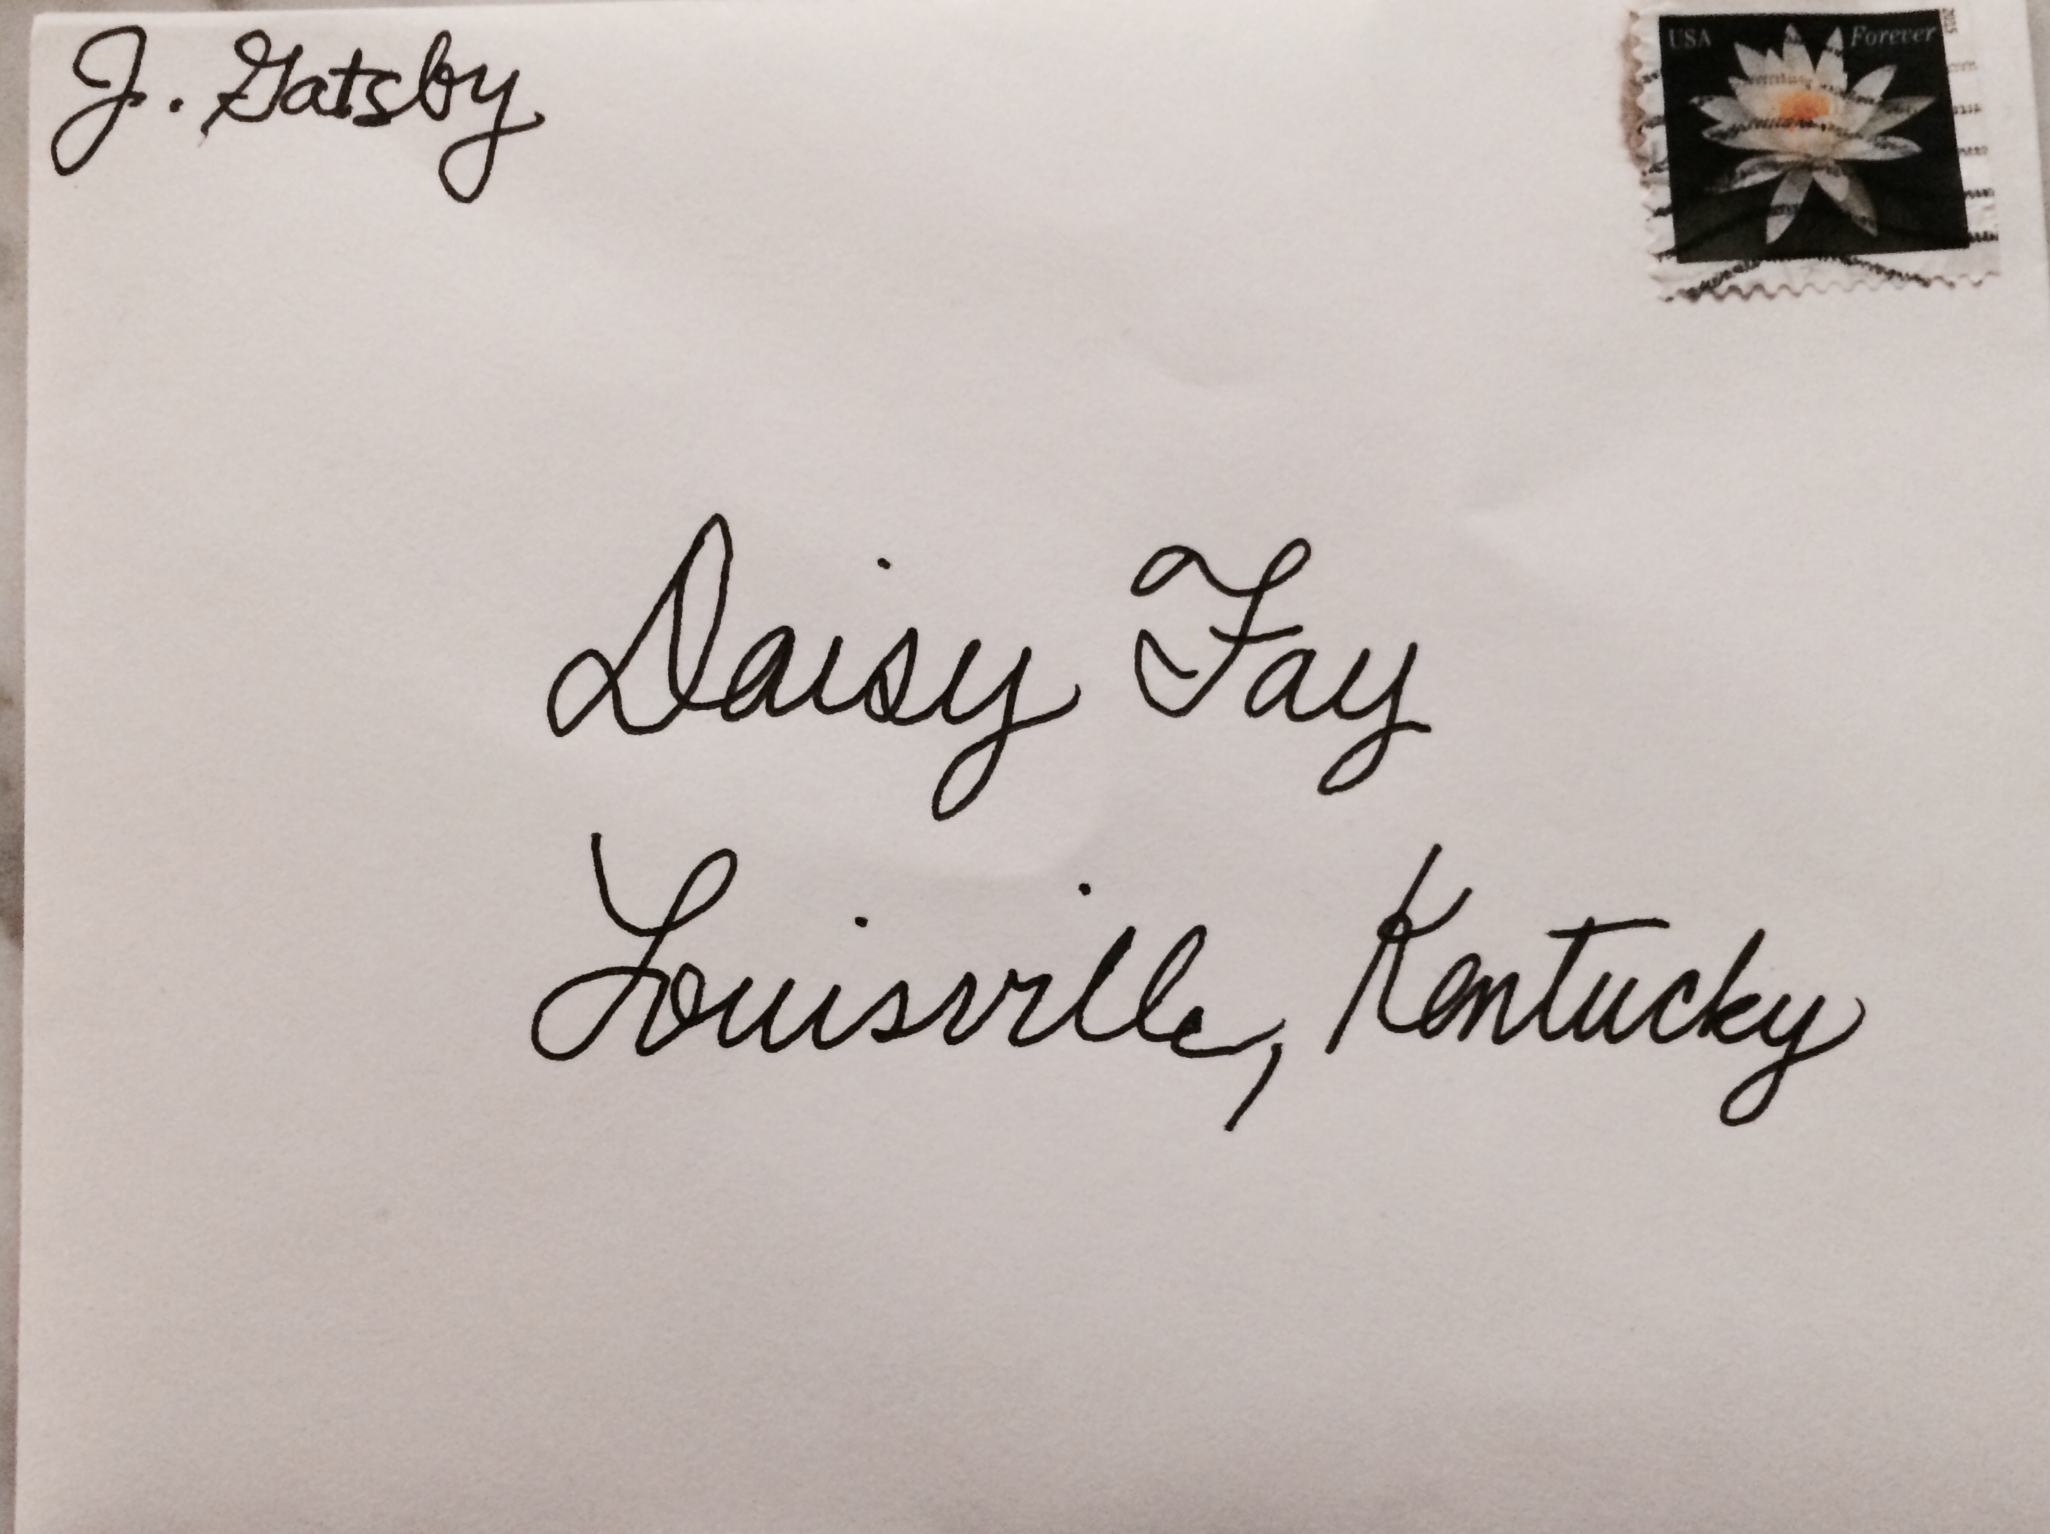 J. Gatsby
USA Forever
2015
Daisy Fay
Louisville, Kentucky